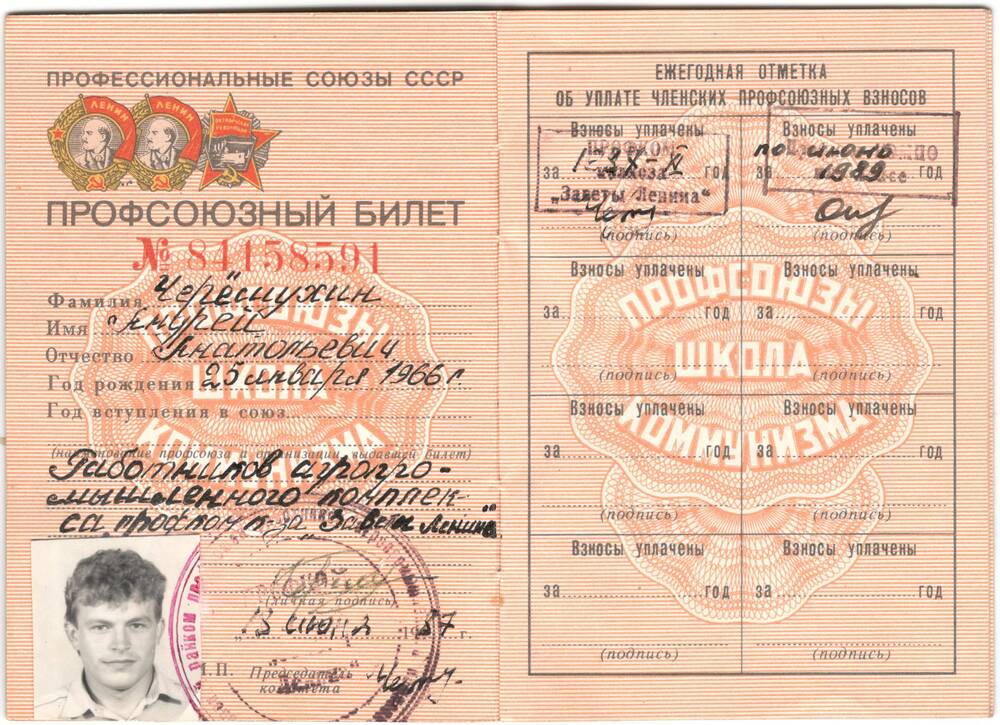 ПРОФЕССИОНАЛЬНЫЕ СОЮЗЫ СССР
ЛЕНИН
ЛЕНИН
ОКТЯБРЬСКАЯ РЕВОЛЮЦИЯ
ПРОФСОЮЗНЫЙ БИЛЕТ
№ 84158591
Фамилия Черёмухин
Имя Андрей
Отчество Анатольевич
Год рождения 25 января 1966 г.
Год вступления в союз
(наименование профсоюза и организации, выдавшей билет)
Работников агропро-
мышленного комплек-
са профком к-за Заветы Ленина
(личная подпись)
"13" июля 1987 г.
М.П. Председатель
комитета
ПРОФСОЮЗЫ
ШКОЛА
КОММУНИЗМА
ЕЖЕГОДНАЯ ОТМЕТКА
ОБ УПЛАТЕ ЧЛЕНСКИХ ПРОФСОЮЗНЫХ ВЗНОСОВ
Взносы уплачены
ПРОФКОМ
за I-IX-XI год
колхоза
"Заветы Ленина"
(подпись)
Взносы уплачены
по июнь
за 1989 год
(подпись)
Взносы уплачены
за год
(подпись)
Взносы уплачены
за год
(подпись)
ПРОФСОЮЗЫ
ШКОЛА
КОММУНИЗМА
Взносы уплачены
за год
(подпись)
Взносы уплачены
за год
(подпись)
Взносы уплачены
за год
(подпись)
Взносы уплачены
за год
(подпись)